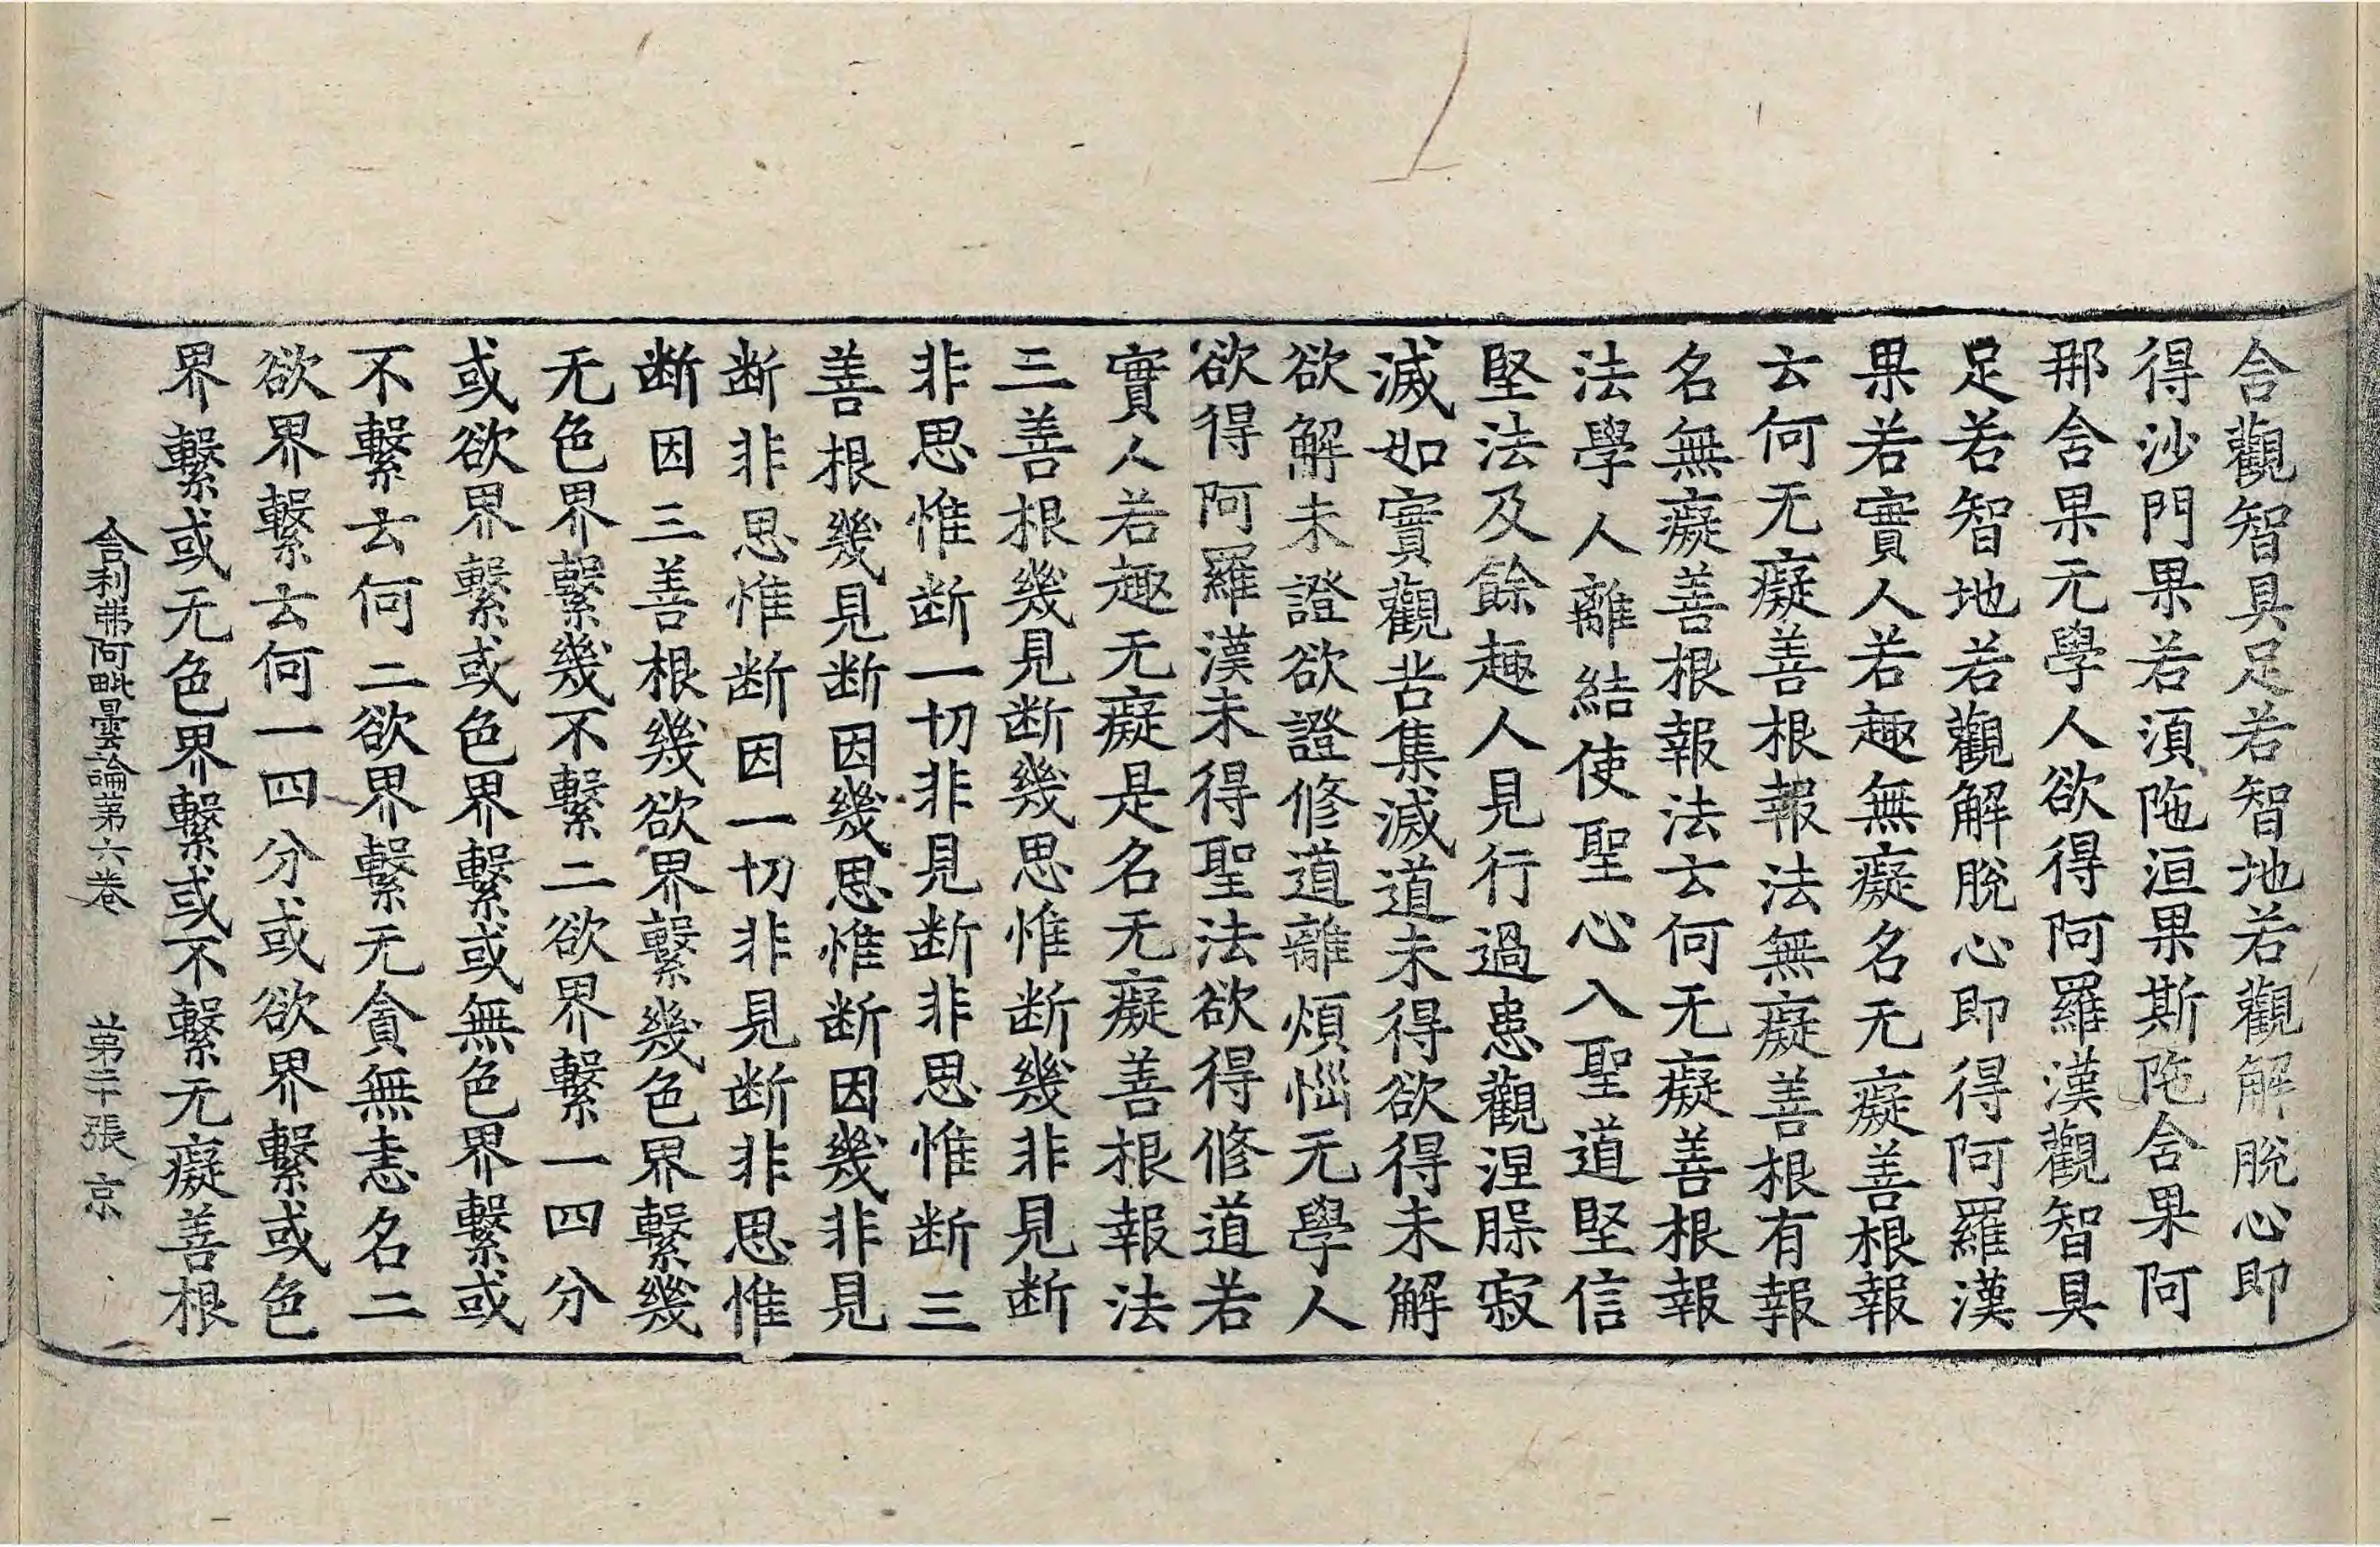 合觀智具足若智地若觀解脫心即
得沙門果若湏陁洹果斯陁含果阿
那含果无學人欲得阿羅漢觀智具
足若智地若觀解脫心即得阿羅漢
果若實人若趣無癡名无癡善根報
云何无癡善根報法無癡善根有報
名無癡善根報法云何无癡善根報
法學人離結使聖心入聖道堅信
堅法及餘趣人見行過患觀涅𣊓寂
滅如實觀苦集滅道未得欲得未解
欲解未證欲證修道離煩惱无學人
欲得阿羅漢未得聖法欲得修道若
實人若趣无癡是名无癡善根報法
三善根幾見断幾思惟断幾非見断
非思惟断一切非見断非思惟断三
善根幾見断因幾思惟断因幾非見
断非思惟断因一切非見断非思惟
断因三善根幾欲界繫幾色界繫幾
无色界繫幾不繫二欲界繫一四分
或欲界繫或色界繫或無色界繫或
不繫云何二欲界繫无貪無恚名二
欲界繫云何一四分或欲界繫或色
界繫或无色界繫或不繫无癡善根
舍利弗阿毗曇論苐六卷 苐二十張 京